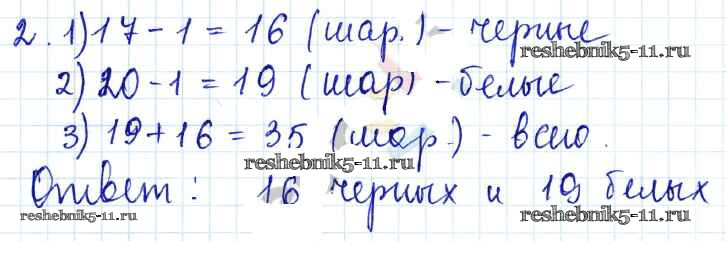 2. 1) 17 - 1 = 16 (шар.) - черные
reshebnik5-11.ru
2) 20 - 1 = 19 (шар) - белые
3) 19 + 16 = 35 (шар.) - всего.
reshebnik5-11.ru
Ответ: 16 черных и 19 белых
reshebnik5-11.ru reshebnik5-11.ru